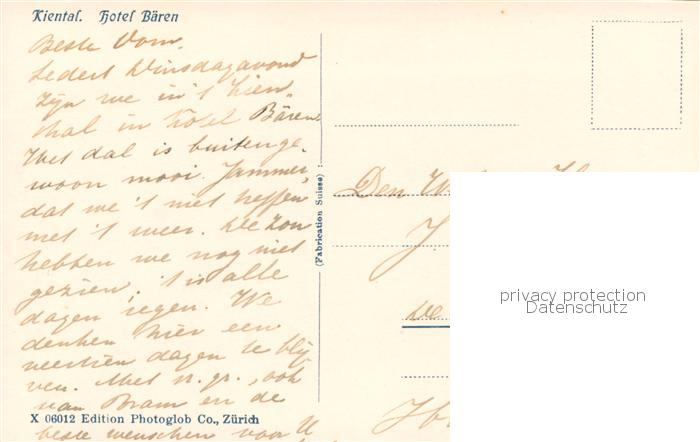 Kiental. Hotel Bären
Beste Oom,
Sedert Dinsdagavond
zijn we in 't Kien-
thal in Hotel Bären
Het dal is buitenge-
woon mooi. Jammer,
dat we 't niet treffen
met 't weer. De zon
hebben we nog niet
gezien, 't is alle
dagen regen. We
denken hier een
veertien dagen te blij-
ven. Met h. gr., ook
van Bram en de
beste wenschen voor U
(Fabrication Suisse)
Den
de
privacy protection
Datenschutz
X 06012 Edition Photoglob Co., Zürich